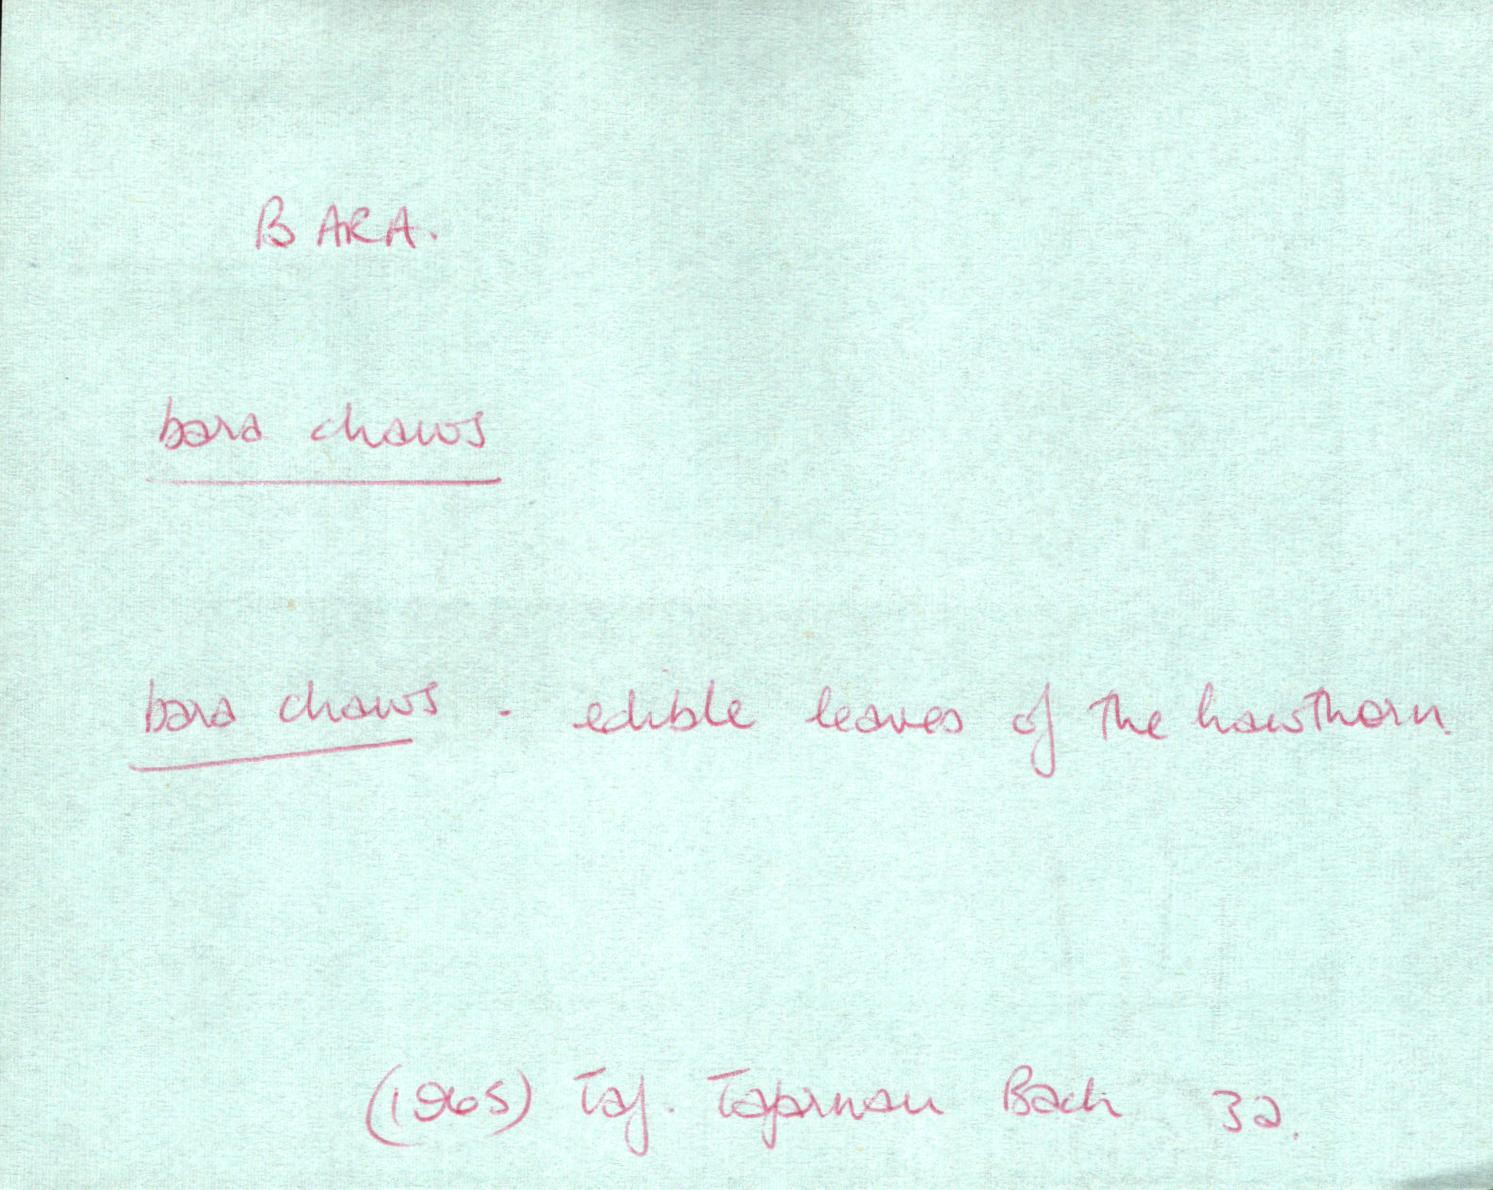 BARA.
bara chaws
bara chaws - edible leaves of the hawthorn.
(1965) Taf. Tafarnau Bach 32.